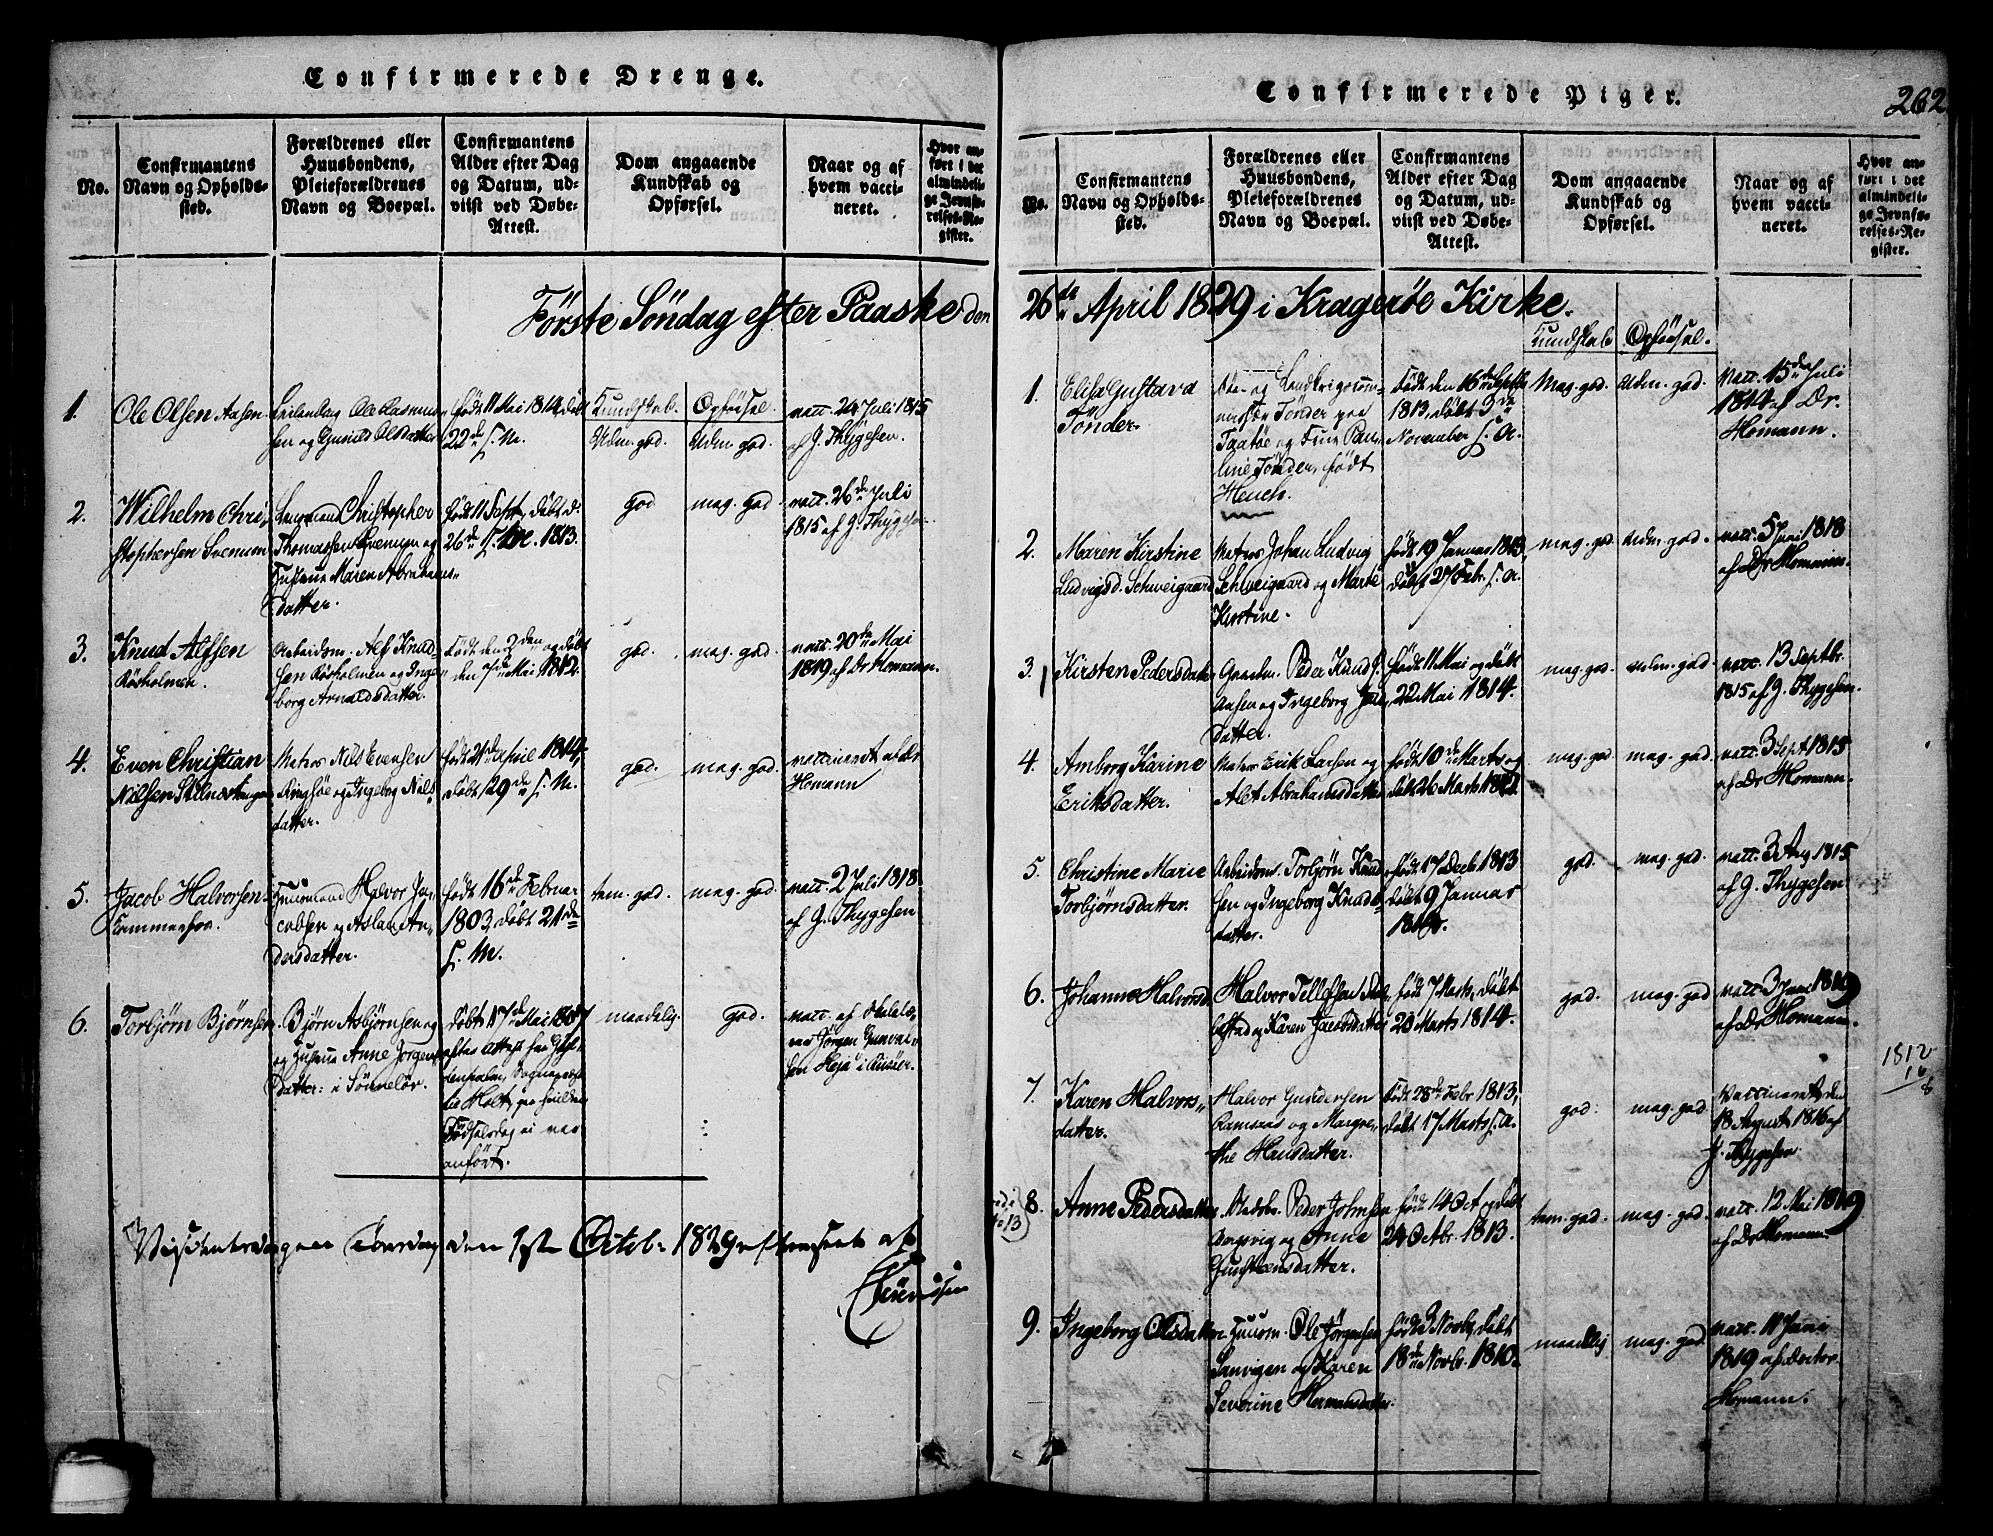 Confirmerede Drenge.
No.
Confirmantens
Navn og Opholds-
sted.
Forældrenes eller
Huusbondens,
Pleieforældrenes
Navn og Boepæl.
Confirmantens
Alder efter Dag
og Datum, ud-
viist ved Døbe-
Attest.
Dom angaaende
Kundskab og
Opførsel.
Naar og af
hvem vacci-
neret.
Hvor an-
ført i det
almindeli-
ge Jevnfø-
relses-Re-
gister.
Første Søndag efter Paaske den
1.
Ole Olsen Aasen
Ole Rasmus-
sen og Gunild Olsdatter
født 11 Mai 1814, døbt
22de s. M.
Kundskab.
Udm. god.
Opførsel.
Udm. god.
vacc. 24 Juli 1815
af J. Thygesen.
2.
Wilhelm Chri-
stophersen
Christopher
Thomassen og
Hustrue Maren Abrahams-
datter.
født 11 Sept, døbt d.
26de 1813.
god
meg. god
vacc. 26de Juli
1815 af J. Thygesen
3.
Knud Alfsen
Røsholmen.
Arbeidsm. Alf Knud-
sen Røsholmen og Inge-
borg Arnoldsdatter.
født den 2den og døbt
den 7de Mai 1812.
god.
meg. god
vacc. 20de Mai
1819 af Dr Homann.
4.
Even Christian
Nilsen
Matros Nils Evensen
og Ingeborg Nils-
datter.
født 21de April 1814,
døbt 29de s. M.
god.
meg. god.
vaccineret af Dr
Homann
5.
Jacob Halvorsen
Huusmand Halvor Ja-
cobsen og Aslau An-
dersdatter.
født 16de Februar
1803, døbt 21de
s. M.
tem. god.
meg. god.
vacc. 2 Juli 1818
af J. Thygesen
6.
Torbjørn Bjørnsen
Bjørn Asbjørnsen og
og Hustrue Anne Jørgens-
datter: i Sønneløv.
døbt 17de Mai 1807
efter Attest fra
ei var
anført.
maadelig.
god.
vacc. af
Jørgen
sen Heja i Riisøer.
den 1ste Octob. 1829 af
Confirmerede Piger.
262
No.
Confirmantens
Navn og Opholds-
sted.
Forældrenes eller
Huusbondens,
Pleieforældrenes
Navn og Boepæl.
Confirmantens
Alder efter Dag
og Datum, ud-
viist ved Døbe-
Attest.
Dom angaaende
Kundskab og
Opførsel.
Naar og af
hvem vacci-
neret.
Hvor an-
ført i det
almindeli-
ge Jevnfø-
relses-Re-
gister.
26de April 1829 i Kragerøe Kirke.
Kundskab
Opførsel.
1.
Elisa Gustava
Tönder.
See- og Landkrigscom-
Tönder paa
Taatøe og Frue Pau-
line Tönder, født
Heuch.
født den 16de Septbr
1813, døbt 9de
November s. A.
Meg. god.
Udm. god.
Vacc. 15de Juli
1814 af Dr.
Homann.
2.
Maren Kirstine
Ludvigsd. Schweigaard
Matros Johan Ludvig
Schweigaard og Marte
Kirstine.
født 19 Januar 1813
døbt 27 Febr. s. A.
meg. god
udm. god.
vacc. 5 Juni 1818
af Dr Homann.
3.
Kirsten Pedersdatter
Peder Knuds.
Aasen og Ingeborg
datter.
født 11 Mai og døbt
22 Mai 1814.
meg. god.
udm. god.
vacc. 13 Septbr.
1815 af J. Thygesen.
4.
Amborg Karine
Eriksdatter.
Matros Erik Larsen og
Alet Abrahamsdatter
født 10de Marts og
døbt 26 Marts
meg. god
meg. god.
vacc. 3 Sept 1815
af Dr Homann.
5.
Christine Marie
Torbjørnsdatter.
Arbeidsm. Torbjørn Knud-
sen og Ingeborg Knuds-
datter.
født 17 Decb 1813
døbt 9 Januar
1814.
god.
meg. god.
vacc. 3 Aug 1815
af J. Thygesen
6.
Johanne Halvorsd.
Halvor Tellefsen
og Karen Jacobsdatter
født 7 Marts, døbt
20 Marts 1814.
god.
meg. god
vacc. 3 Juni 1819
af Dr Homann.
1812
16
8
7.
Karen Halvors-
datter.
Halvor Gundersen
og Margre-
the Hansdatter.
født 28de Febr 1813,
døbt 17 Marts s. A.
god.
meg. god
Vaccineret den
18 August 1816 af
J. Thygesen
8.
Anne Pedersdatter
Peder Johnsen
og Anne
datter.
født 14 Oct og døbt
24 Octbr. 1813.
tem. god.
meg. god.
vacc. 12 Mai 1819
af Dr Homann.
9.
Ingeborg Olsdatter
Huusm. Ole Jørgensen
og Karen
Severine Hermansdatter.
født 3 Novb, døbt
18de Novbr. 1810.
maadelig
meg. god.
vacc. 11 Juni
1819 af Doctor
Homann.